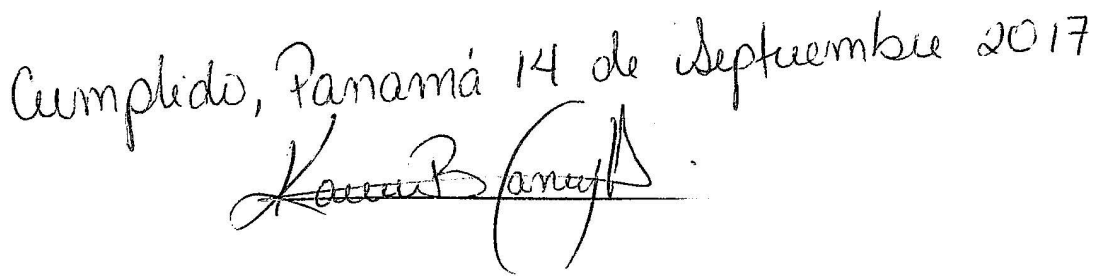 Cumplido, Panamá 14 de septiembre 2017